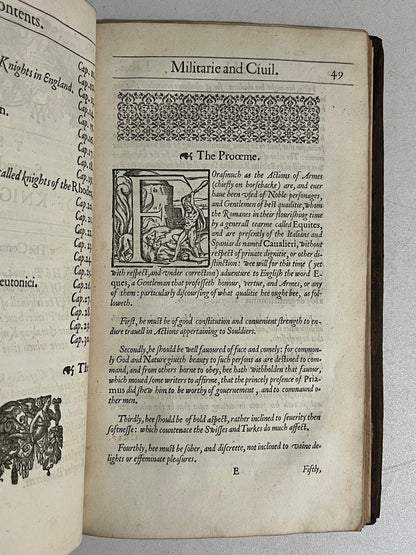 ontents.
Knights in England.
Cap. 11.
Cap. 12.
Cap. 13.
Cap. 14.
n.
Cap. 15.
Cap. 16.
Cap. 17.
Cap. 18.
Cap. 19.
Cap. 20.
Cap. 21.
alled knights of the Rhodes
Cap. 22.
Cap. 23.
Cap. 24.
Cap. 25.
Cap. 26.
eutonici.
Cap. 27.
Cap. 28.
Cap. 29.
Cap. 30.
Th
Militarie and Ciuil.
49
The Prooeme.
Forasmuch as the Actions of Armes
(chiefly on horsebacke) are, and euer
haue been vsed of Noble personages,
and Gentlemen of best qualitie, whom
the Romanes in their flourishing time
by a generall tearme called Equites,
and are presently of the Italians and
Spaniards named Caualieri, without
respect of priuate dignitie, or other di-
stinction: wee will for this time (yet
with respect, and vnder correction) aduenture to English the word E-
ques, a Gentleman that professeth honour, vertue, and Armes, or any
of them: particularly discoursing of what qualitie hee ought bee, as fol-
loweth.
First, he must be of good constitution and conuenient strength to en-
dure trauell in Actions appertaining to Souldiers.
Secondly, he should be well fauoured of face and comely: for common-
ly God and Nature giueth beauty to such persons as are destined to com-
mand, and from others borne to obey, hee hath withholden that fauour,
which moued some writers to affirme, that the princely presence of Pria-
mus did shew him to be worthy of gouernement, and to commaund o-
ther men.
Thirdly, hee should be of bold aspect, rather inclined to seuerity then
softnesse: which countenace the Swisses and Turkes do much affect.
Fourthly, hee must be sober, and discreete, not inclined to vaine de-
lights or effeminate pleasures.
E
Fiftly,